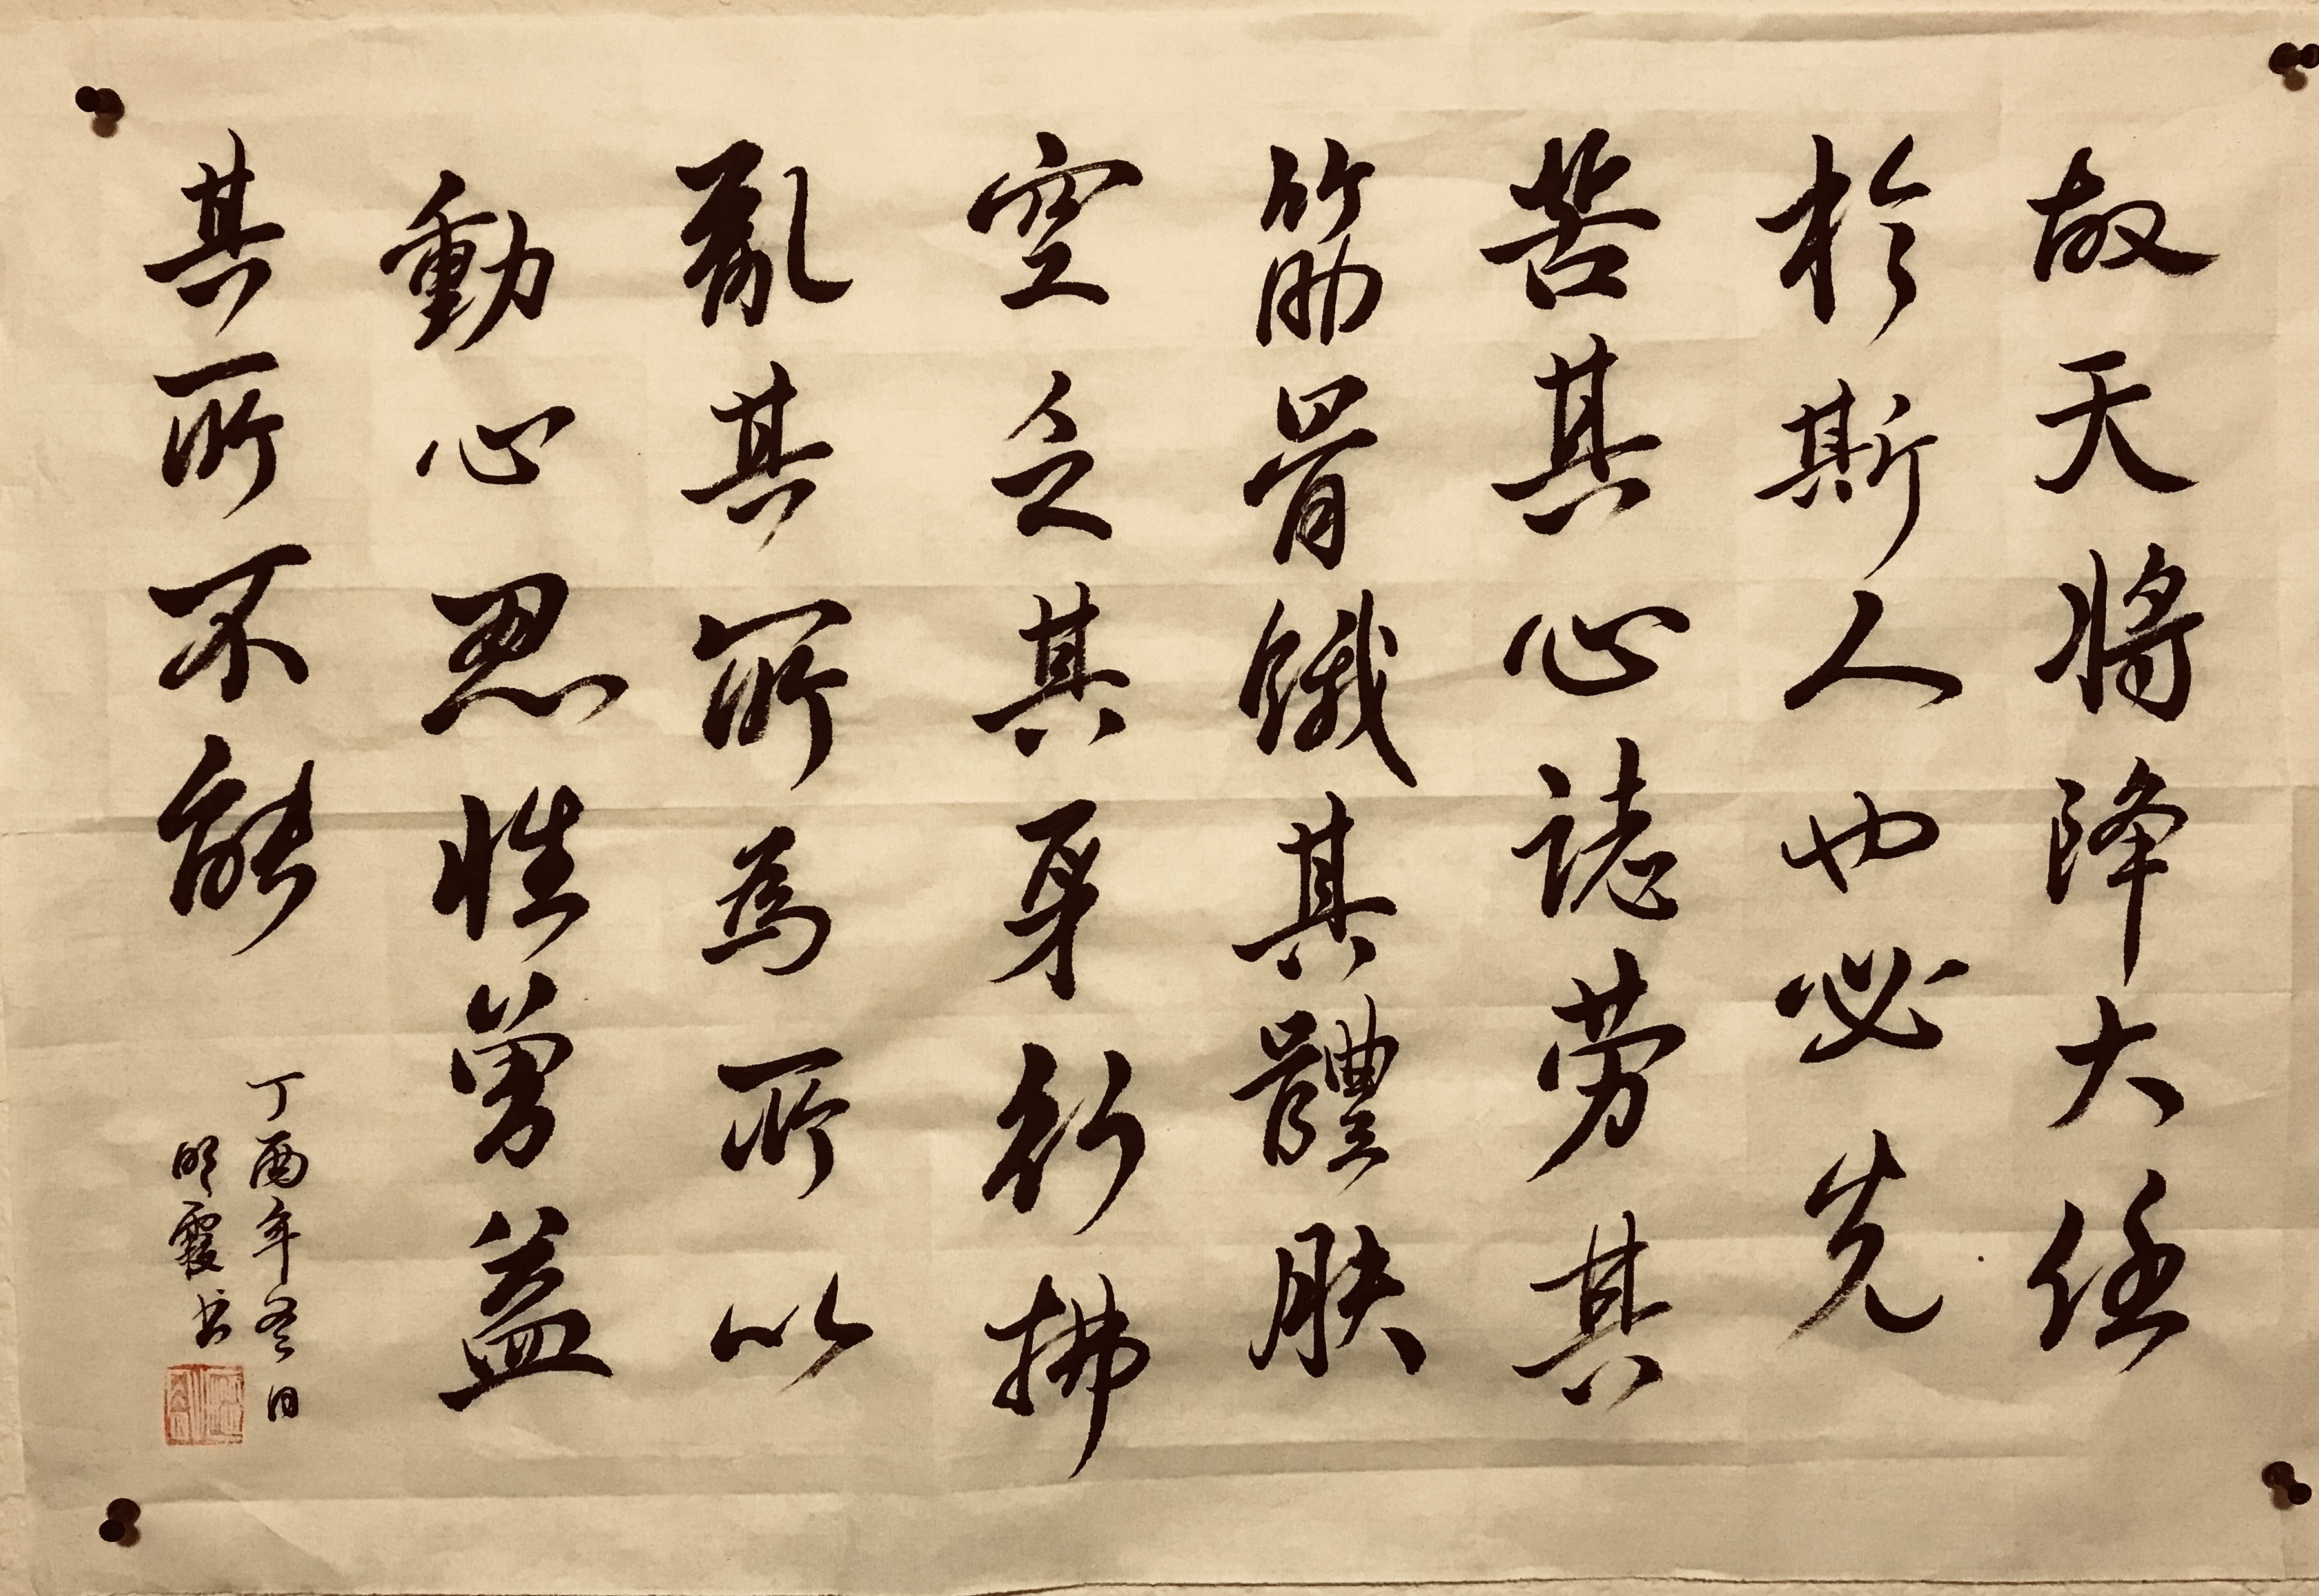 故天將降大任
於斯人也必先
苦其心誌勞其
筋骨餓其體膚
空乏其身行拂
亂其所為所以
動心忍性曾益
其所不能
丁酉年冬日
明霞书